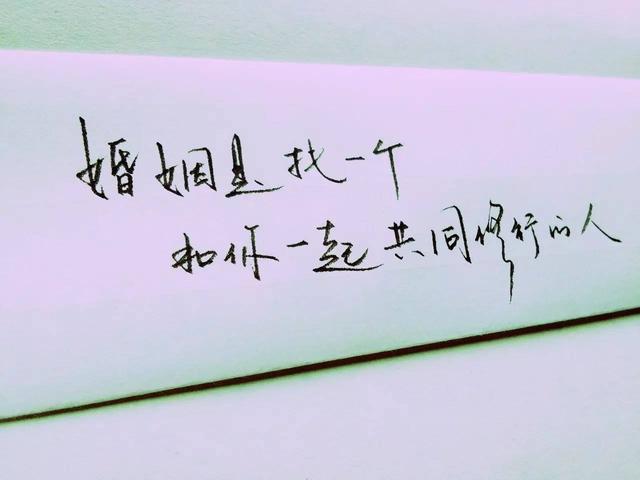 婚姻是找一个
和你一起共同修行的人